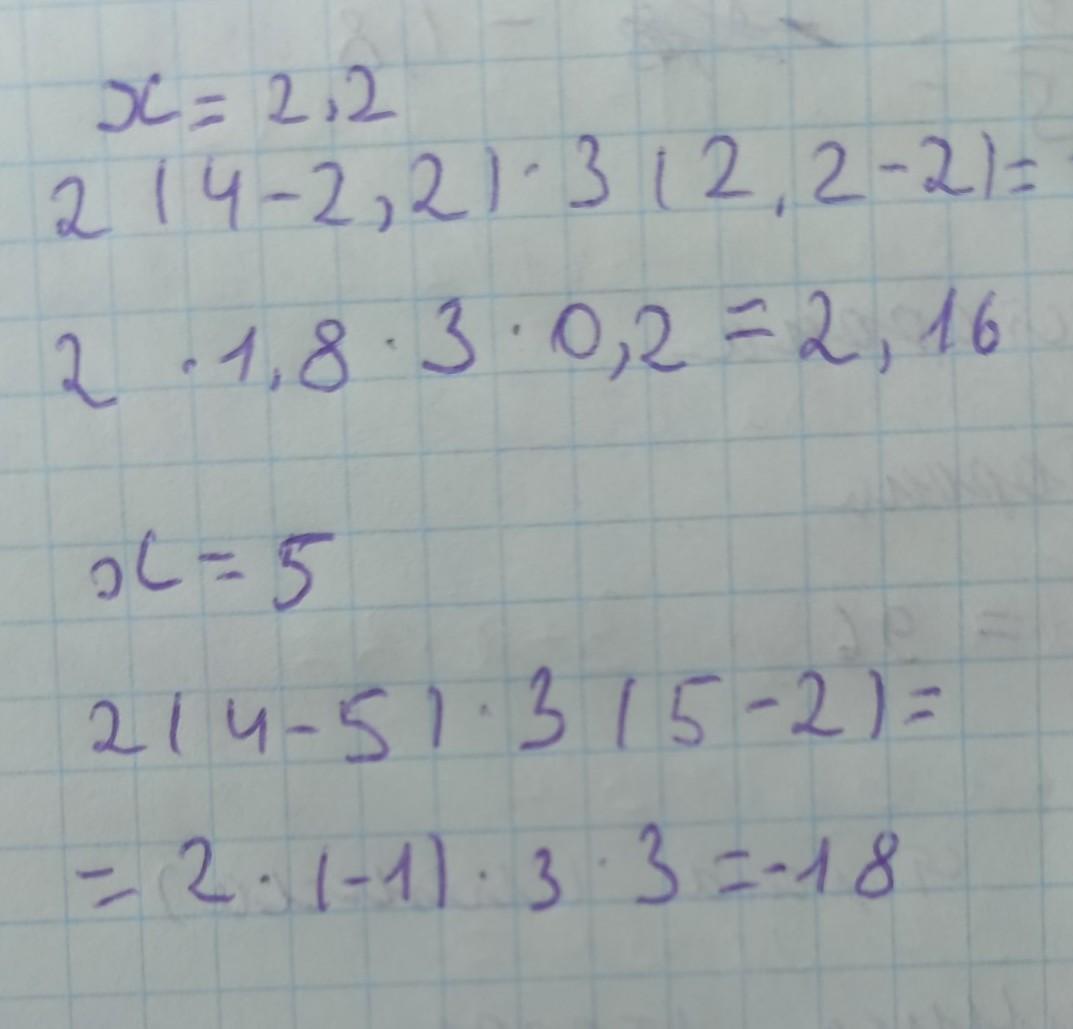 x = 2,2
2(4-2,2)·3(2,2-2)=
2·1,8·3·0,2=2,16
x=5
2(4-5)·3(5-2)=
=2·(-1)·3·3=-18